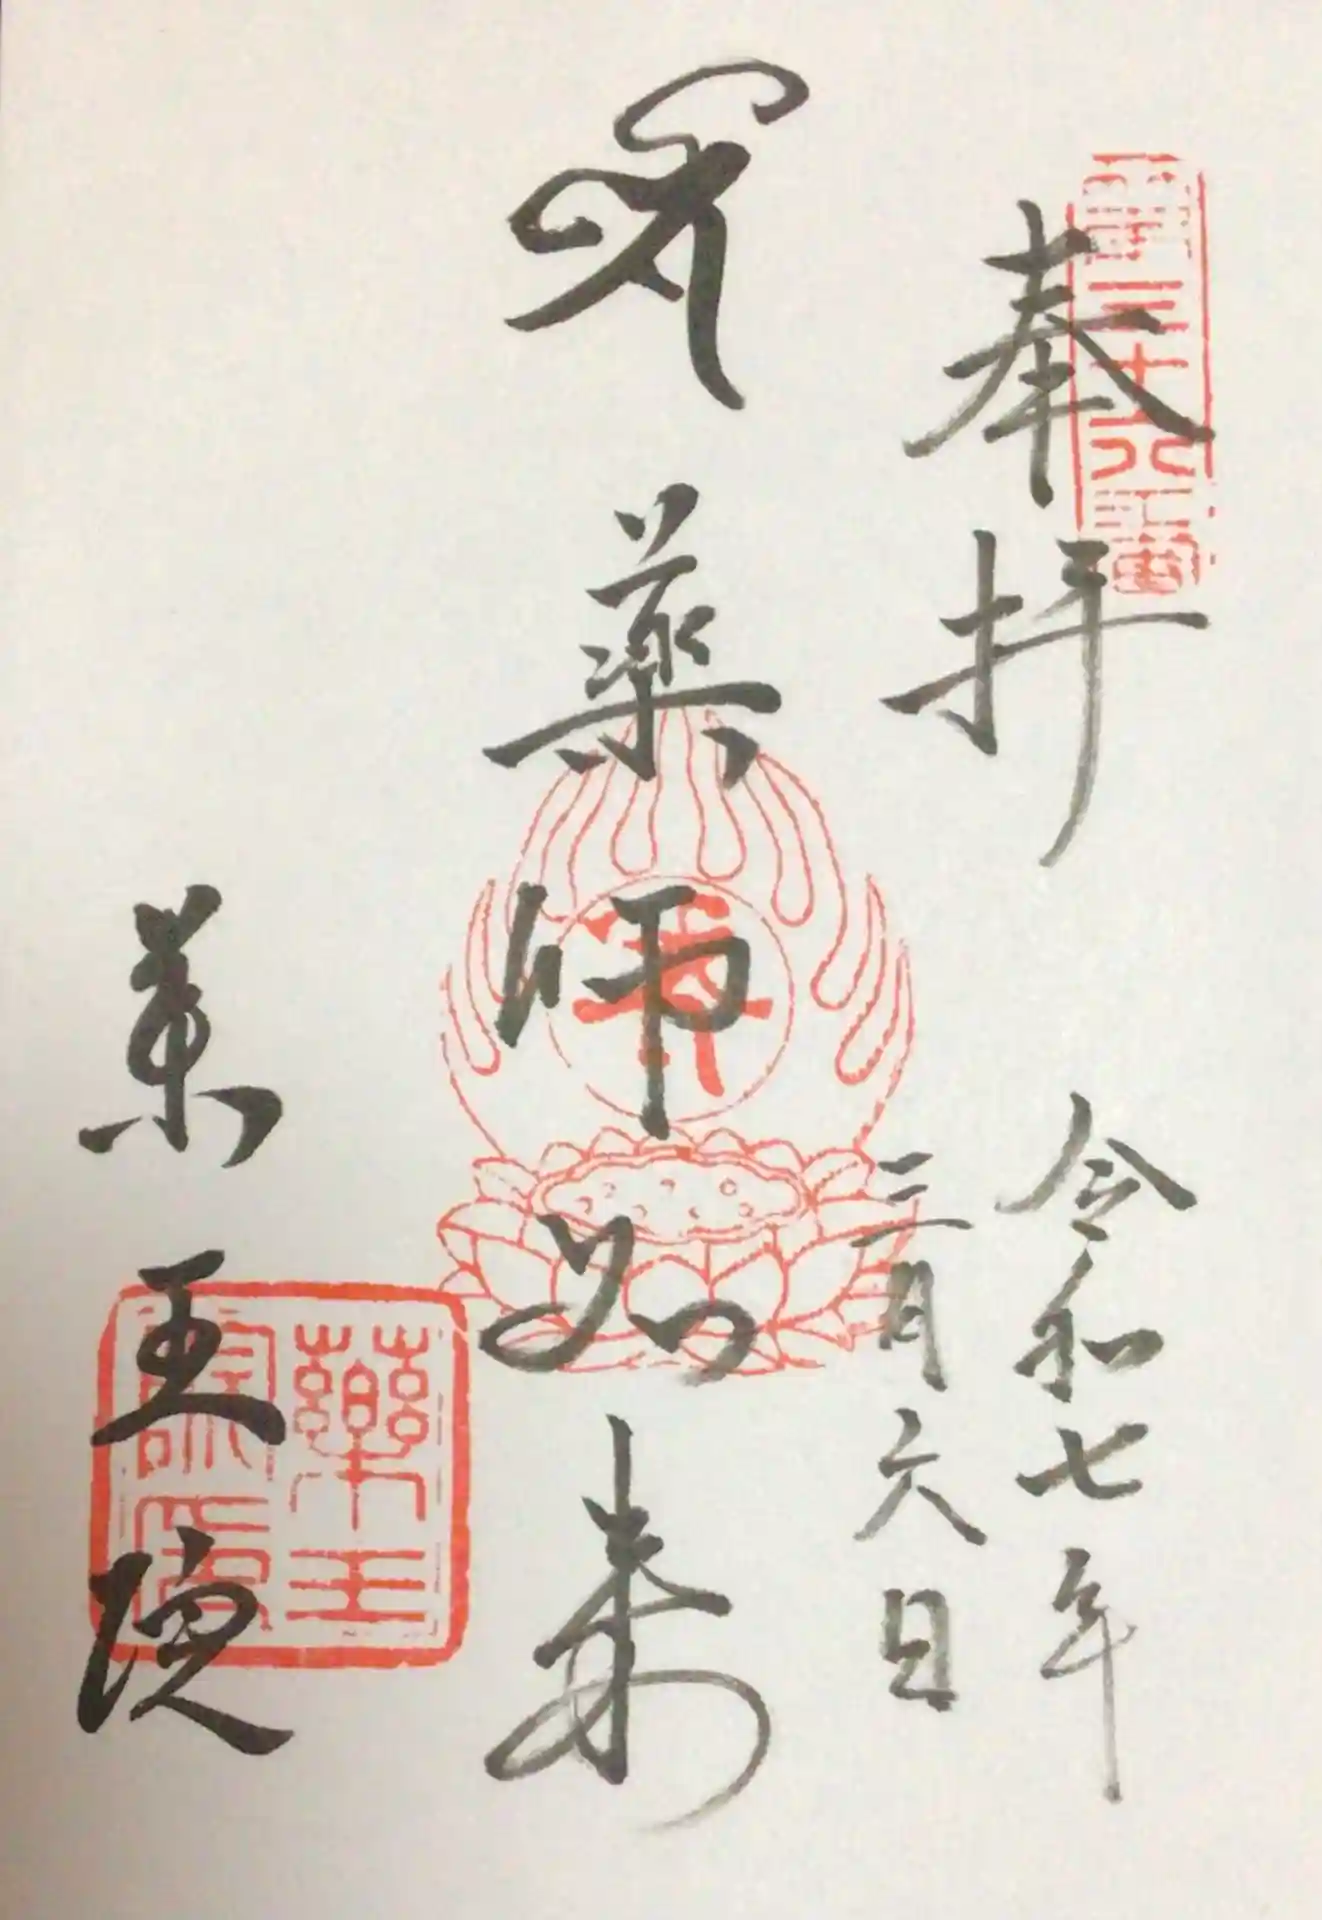 奉拝
令和七年
三月六日
薬師如来
薬王院
藥王